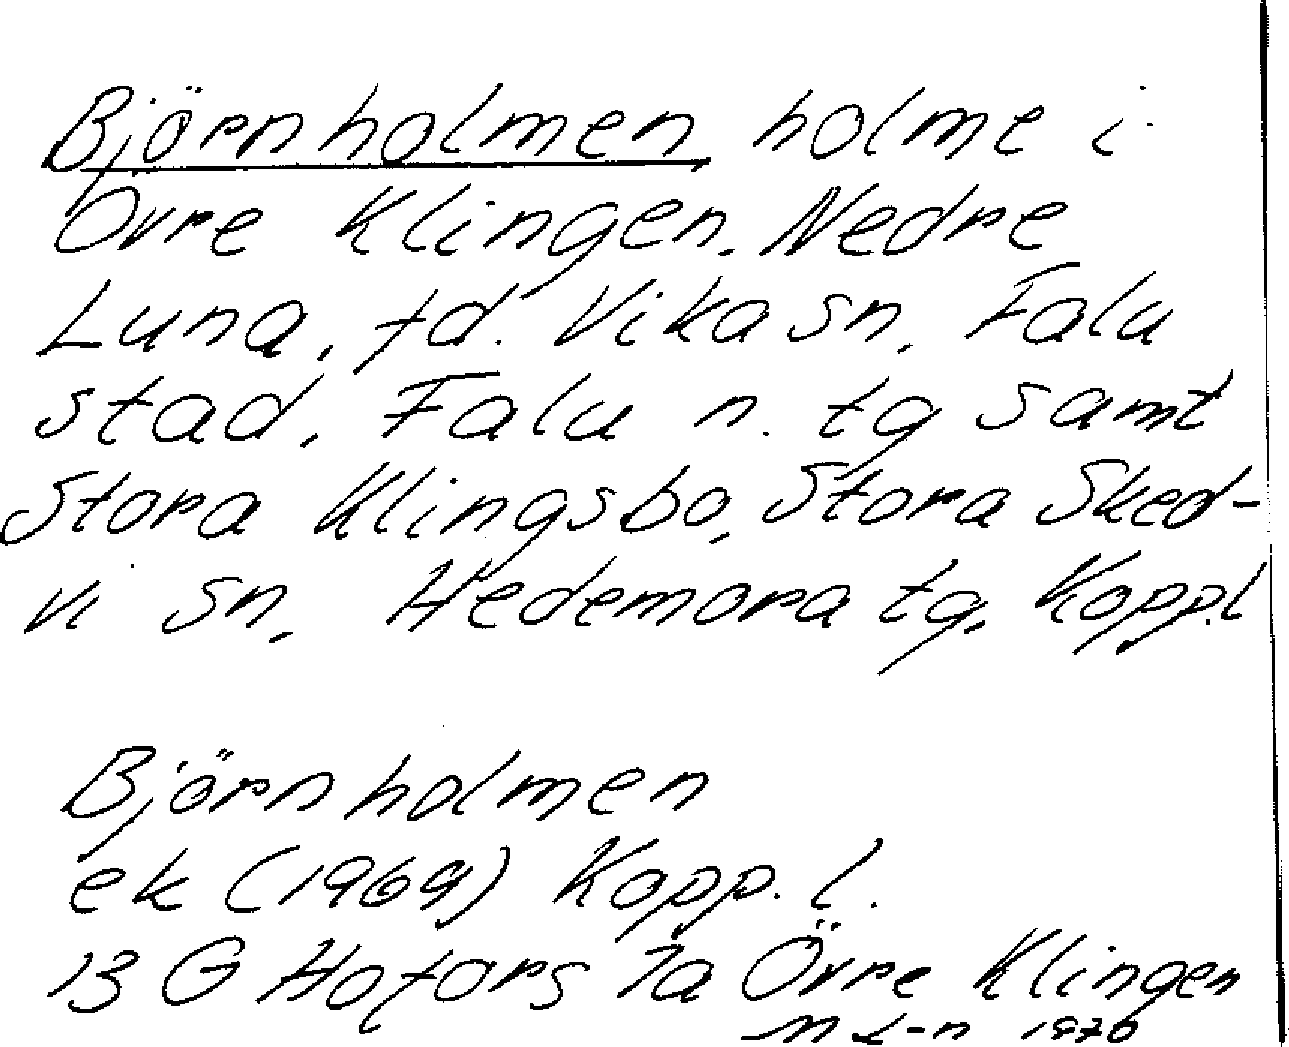 Björnholmen holme i
Övre Klingen. Nedre
Luna, fd. Vika sn, Falu
stad, Falu n. tg samt
Stora Klingsbo, Stora Sked-
vi sn, Hedemora tg, Kopp.l
Björnholmen
ek (1969) Kopp. l.
13 G Hofors 7a Övre Klingen
1970